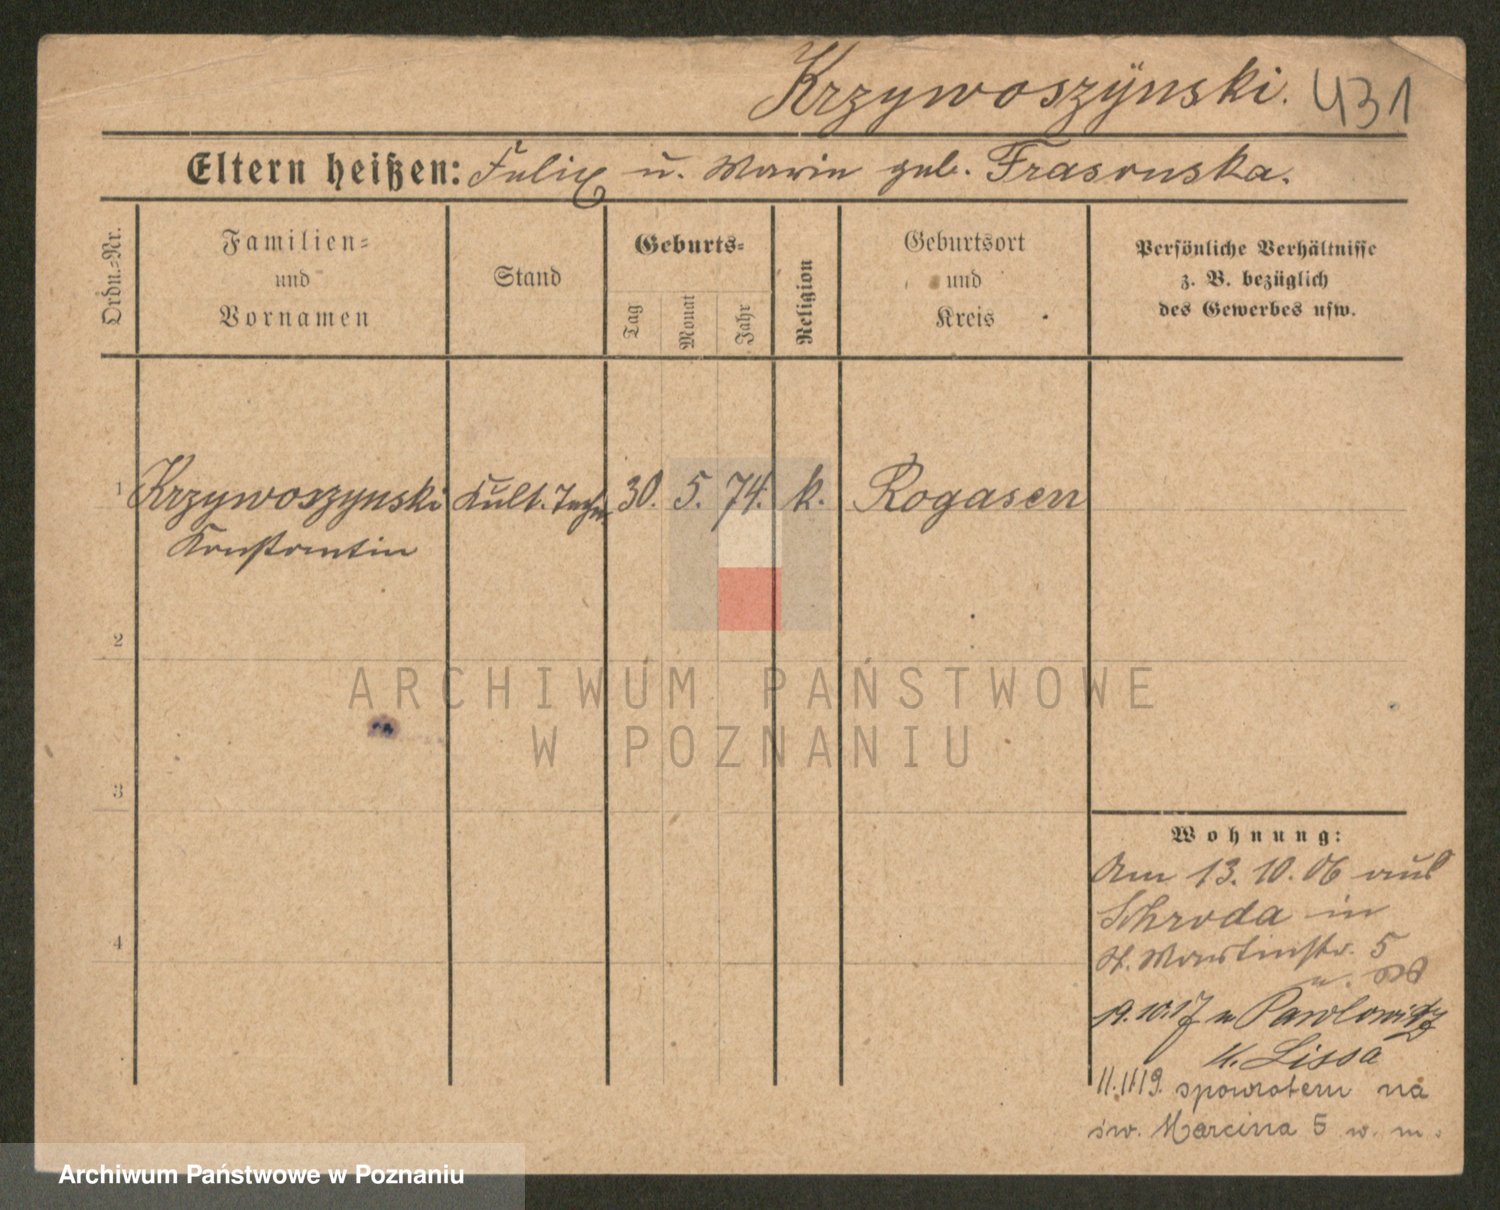 Krzywoszÿnski. 431
Eltern heißen: Felix u. Maria geb. Frasonska.
Ordn.=Nr.
Familien=
und
Vornamen
Stand
Geburts=
Tag
Monat
Jahr
Religion
Geburtsort
und
Kreis
Persönliche Verhältnisse
z. B. bezüglich
des Gewerbes usw.
1 Krzywoszynski Kult. Techn. 30. 5. 74. k. Rogasen
Konstantin
2
3
4
Wohnung:
Am 13.10.06 aus
Schroda in
St. Martinstr. 5
19.10.17 n Pawlowitz
K. Lissa
11.11 19. spowrotem na
św. Marcina 5 w. m.
ARCHIWUM PAŃSTWOWE
W POZNANIU
Archiwum Państwowe w Poznaniu